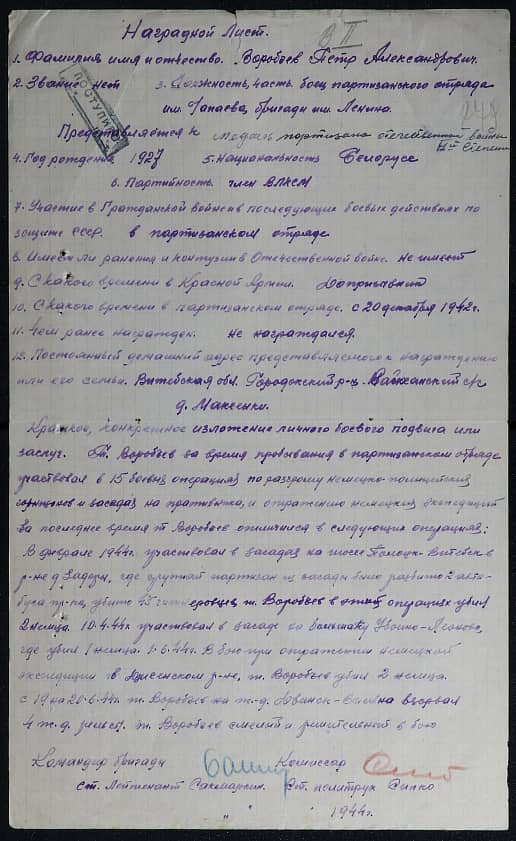 Наградной Лист.
1. Фамилия имя и отчество. Воробьев Петр Александрович.
2. Звание нет 3. Должность, часть. боец партизанского отряда
ПОСТУПИЛО
им. Чапаева, бригады им. Ленина.
Представляется к медаль партизана отечественной войны
II степени
4. Год рождения 1927 5. Национальность Белорусс
6. Партийность. член ВЛКСМ
7. Участие в Гражданской войне и в последующих боевых действиях по
защите СССР. в партизанском отряде
8. Имеет ли ранения и контузии в Отечественной войне. не имеет
9. С какого времени в Красной Армии. Допризывник
10. С какого времени в партизанском отряде. с 20 декабря 1942 г.
11. Чем ранее награжден. не награждался.
12. Постоянный домашний адрес представляемого к награждению
или его семьи. Витебская обл. Городокский р-н, с/с
д. Максенки.
Краткое, конкретное изложение личного боевого подвига или
заслуг. Т. Воробьев за время пребывания в партизанском отряде
участвовал в 15 боевых операциях по разгрому немецко-полицейских
гарнизонов и засадах на противника, и отражению немецких экспедиций
За последнее время т Воробьев отличился в следующих операциях:
В феврале 1944 г. участвовал в засадах на шоссе Полоцк-Витебск в
р-не д. где группой партизан из засады было разбито 2 авто-
буса пр-ка, убито 45 т. Воробьев в этой операции убил
2 немца. 10.4.44 г участвовал в засаде на большаку
где убил 1 немца. 1.6.44 г. В бою при отражении немецкой
экспедиции в р-не, т. Воробьев убил 2 немца.
с 19 на 20.6.44 г. т. Воробьев на ж-д. Двинск-Вильна взорвал
4 ж.д. рельсы. т. Воробьев смелый и решительный в бою
Командир бригады Комиссар
Ст. Лейтенант Сакмаркин. Ст. политрук Сипко
1944 г.